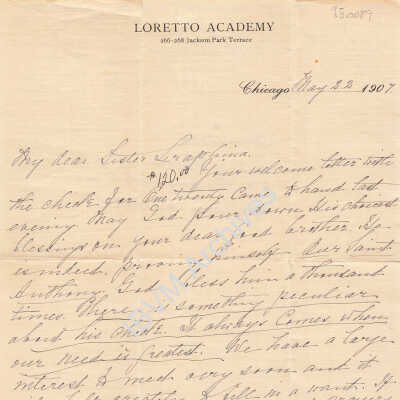 LORETTO ACADEMY
266-268 Jackson Park Terrace
Chicago May 22 1907
My dear Sister Seraphina.
$120.00 Your welcome letter with
the check for One twenty came to hand last
evening May God pour down His choicest
blessings on your dear good brother. He
is indeed proving himself Our Saint
Anthony. God bless him a thousand
times. There is something peculiar
about his check. It always comes when
our need is greatest. We have a large
interest to meet very soon and it
will a want. It
BVM Archives